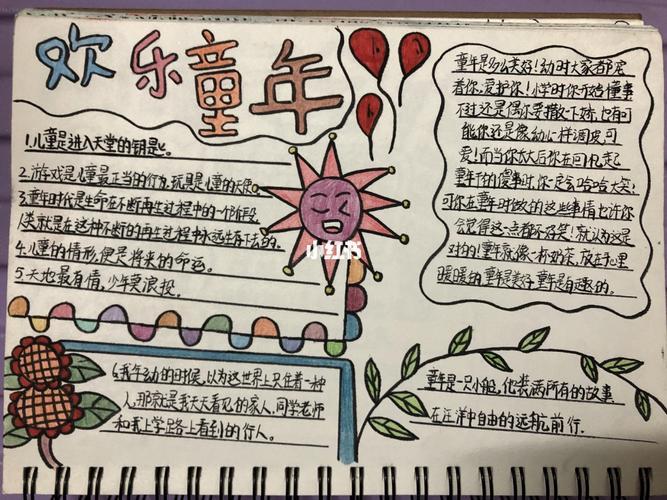 欢乐童年
1.儿童是进入天堂的钥匙。
2.游戏是儿童最正当的行为,玩具是儿童的天使。
3.童年时代是生命在不断再生过程中的一个阶段,
人类就是在这种不断的再生过程中永远生存下去的。
4.儿童的情形,便是将来的命运。
5.天地最有情,少年莫浪投。
小红书
6.我年幼的时候,以为这世界上只住着一种
人,那就是我天天看见的家人,同学老师
和我上学路上看到的行人。
童年是多么美好!幼时大家都宠
着你,爱护你!小学时你开始懂事
不过还是偶尔要撒一下娇,也有可
能你还是像幼儿一样调皮,可
爱!而当你长大后你在回忆起
童年下的傻事时,你一定会哈哈大笑!
可你在童年时做的这些事情也许你
会觉得这一点都不好笑!就认为这是
对的!童年就像一杯奶茶,放在手里
暖暖的,童年是美好,童年是有趣的。
童年是一只小船,他装满所有的故事
在汪洋中自由的远航前行.